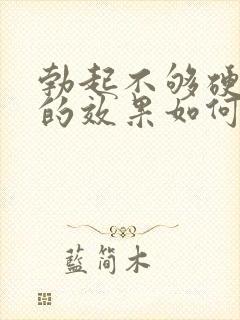 勃起不够硬
的效果如何
藍简木